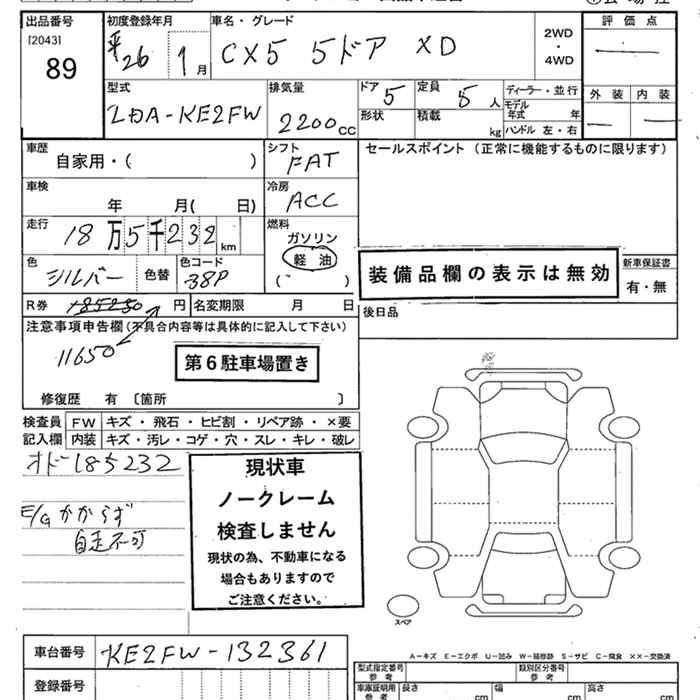 出品番号 初度登録年月 車名・グレード 評価点
[2043] 平26 1月 CX5 5ドア XD 2WD・4WD
89
型式 排気量 ドア 5 定員 5人 ディーラー・並行 外装 内装
LDA-KE2FW 2200cc 形状 積載 kg モデル年式 年
ハンドル 左・右
車歴 シフト セールスポイント (正常に機能するものに限ります)
自家用・( ) FAT
車検 冷房
年 月( 日) ACC
走行 燃料
18万5千232km ガソリン
軽油
色 色コード ( )
シルバー 色替 38P 装備品欄の表示は無効 新車保証書
有・無
R券 円 名変期限 月 日 後日品
注意事項申告欄(不具合内容等は具体的に記入して下さい)
11650
第6駐車場置き
修復歴 有 〔箇所 〕
検査員 FW キズ・飛石・ヒビ割・リペア跡・×要
記入欄 内装 キズ・汚レ・コゲ・穴・スレ・キレ・破レ
オドー185232
現状車
ノークレーム
E/Gかからず 検査しません
自走不可 現状の為、不動車になる
場合もありますので
ご注意ください。
スペア
車台番号 KE2FW-132361
A-キズ E-エクボ U-凹み W-補修跡 S-サビ C-腐食 ××-交換済
登録番号 型式指定番号 参考 類別区分番号 参考
車庫証明用 参考 長さ cm 幅 cm 高さ cm